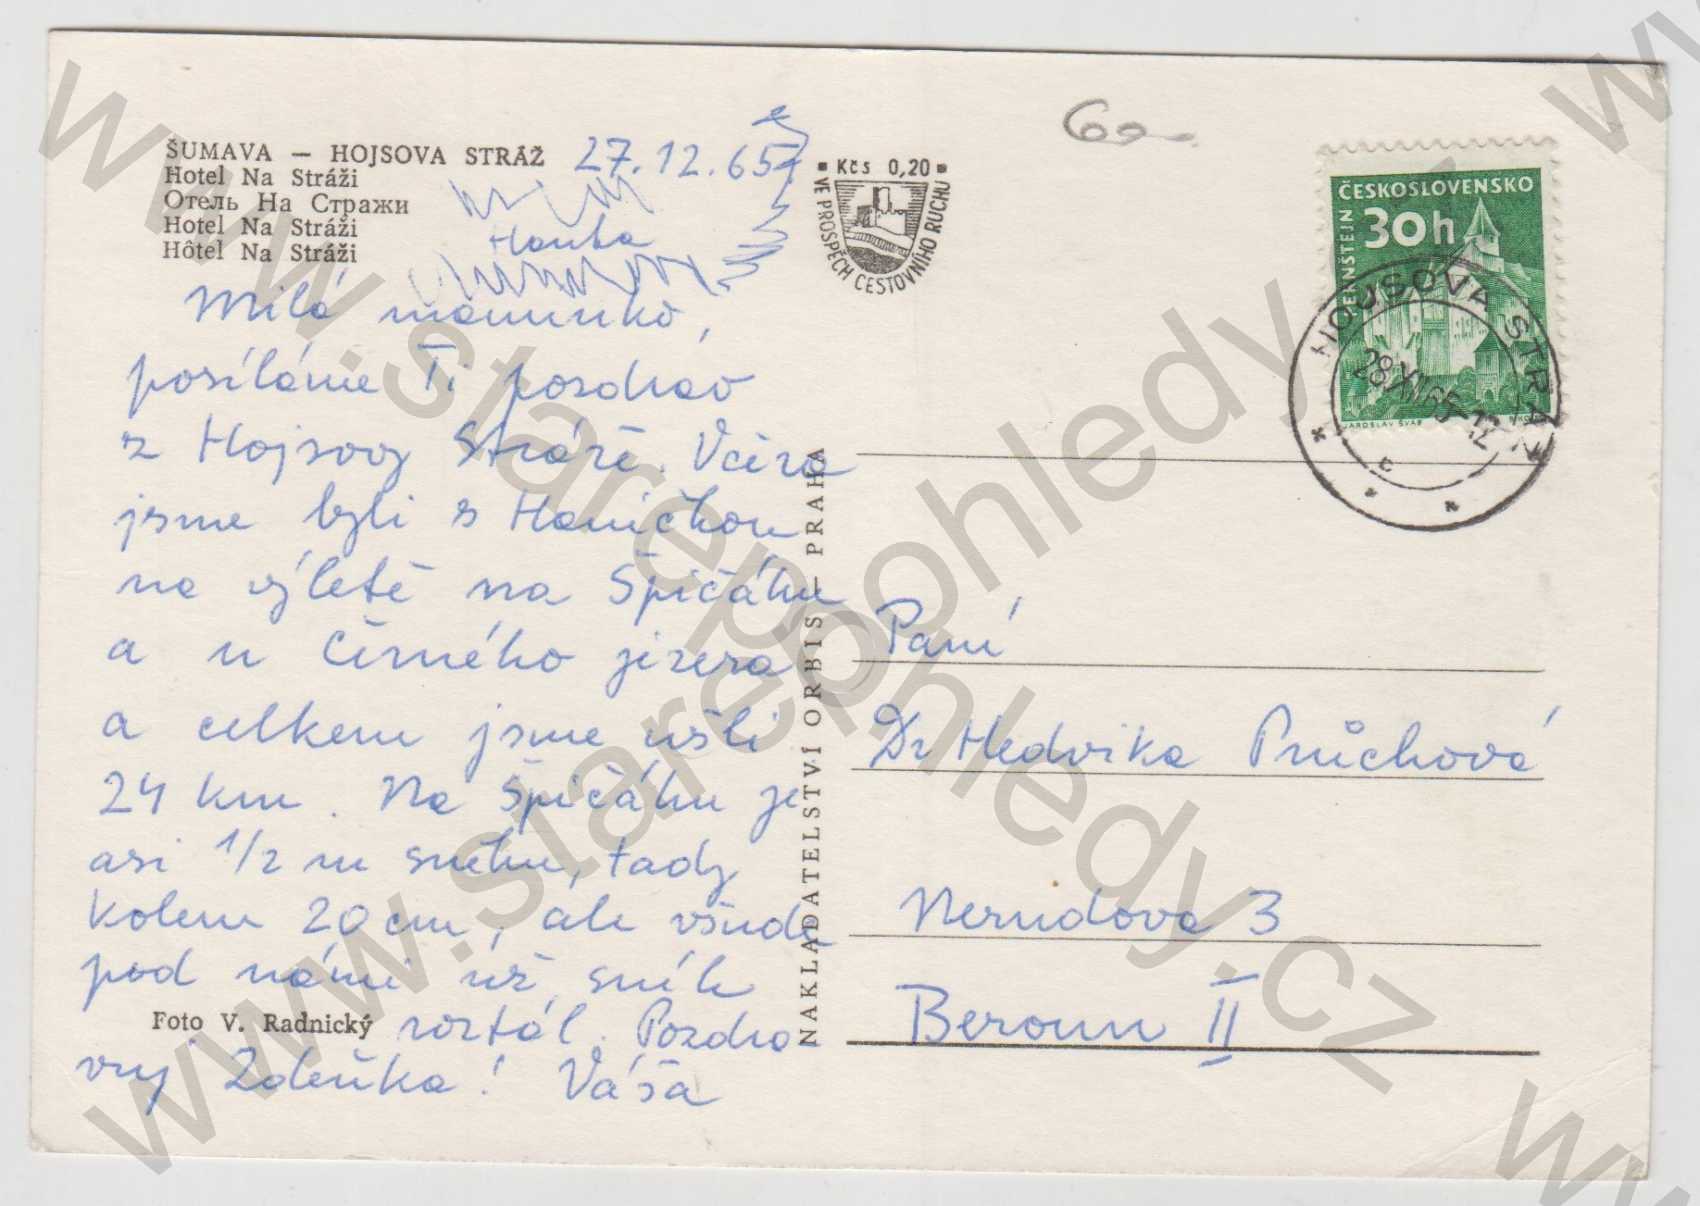 ŠUMAVA — HOJSOVA STRÁŽ 27.12.65
Hotel Na Stráži
Отель На Стражи
Hotel Na Stráži
Hôtel Na Stráži
Hanka
Milá maminko,
posíláme Ti pozdrav
z Hojsovy Stráže. Včera
jsme byli s Haničkou
na výletě na Špičáku
a u Černého jezera
a celkem jsme ušli
24 km. Na Špičáku je
asi 1/2 m sněhu, tady
kolem 20 cm, ale všude
pod námi už sníh
Foto V. Radnický
roztál. Pozdra
vuj Zdeňka! Váša
NAKLADATELSTVÍ ORBIS — PRAHA
Kčs 0,20
VE PROSPĚCH CESTOVNÍHO RUCHU
60-
ČESKOSLOVENSKO
30h
JAROSLAV ŠVAB
HOJSOVA STRÁŽ
28.XII.65-12
c
Paní
Dr Hedvika Průchová
Nerudova 3
Beroun II
www.starepohledy.cz
www.starepohledy.cz